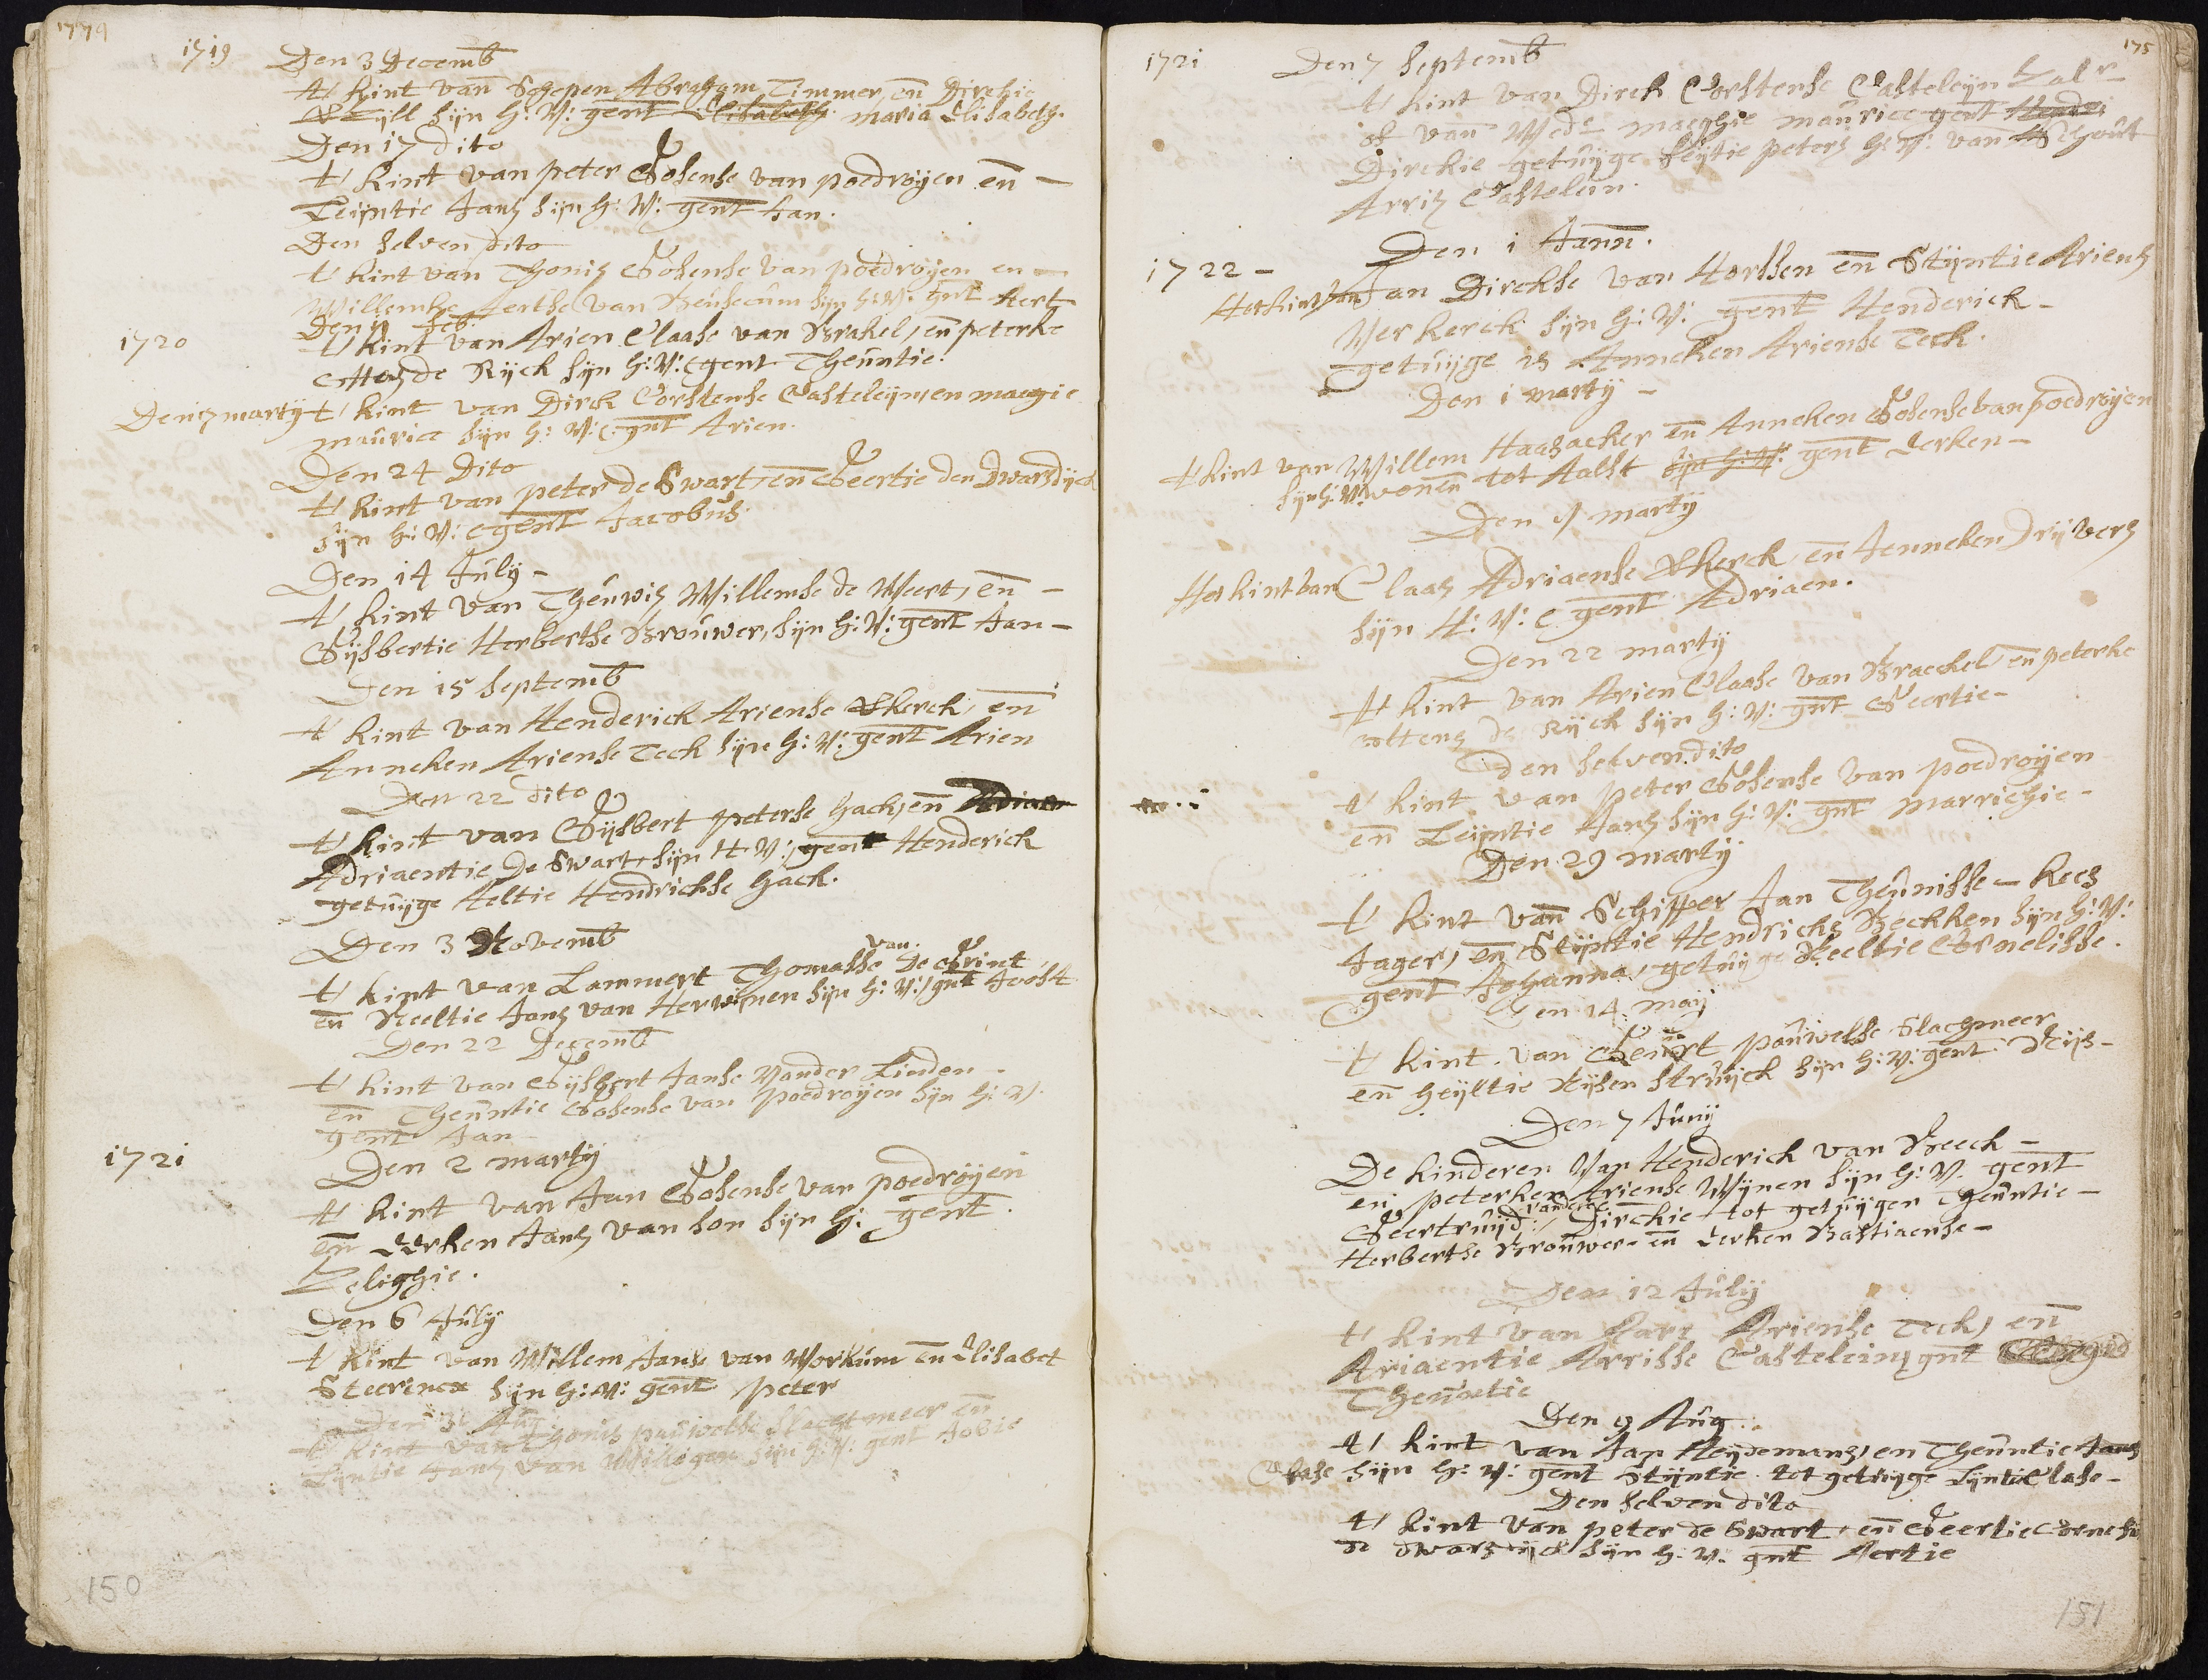 1719
Den 3 Decemb
t' kint van Schepen Abraham Timmer, en Dirckie
sijn H: V: gent Elisabeth maria Elisabeth.
Den 17 dito
t' kint van peter Gosense van poedroijen en —
Leijntie Jans sijn H: V: gent Jan.
Den selven dito
t' kint van Thonis Gosense van poedroijen en —
Willemke Aertse van Heusecum sijn H: V: gnt Aert
Den feb.
1720
t' kint van Arien Claase van Brakel, en peterke
Ottens de Rijck sijn H: V: gent Theuntie.
Den 3 martij t' kint van Dirck Corstense Casteleijn, en maegie
maurice sijn H: V: gnt Arien.
Den 24 Dito
t' kint van peter de Swart, en Geertie den Dwarsdijck
sijn H: V: gent Jacobus
Den 14 July –
t' kint van Theuwis Willemse de Weert, en –
Gijsbertie Herbertse Brouwer, sijn H: V: gent Jan –
Den 15 septemb
t' kint van Henderick Ariense Vkerck, en
Anneken Ariense Teck sijn H: V: gent Arien
Den 22 dito
t' kint van Gijsbert peterse hack, en Adriaen
Adriaentie De Swart, sijn H V: gent Henderick
getuijge Aeltie Hendrickse hack.
Den 3 Novemb
van
t' kint van Lammert Thomasse De Grint
en Neeltie Jans van Herwijnen sijn H: V: gnt Joost
Den 22 Decemb
t' kint van Gijsbert Janse Vander Linden
en Theuntie Gosense van poedroijen sijn H: V.
gent Jan –
1721
Den 2 martij
t' kint van Jan Gosense van poedroijen
en Eerken Jans van son sijn H: gent.
Zelighie.
Den 6 July
t' kint van Willem Janse van Workum en Elisabet
Steerinex sijn H: V: gent peter
Den 31 Aug
t' kint van Thonis pauwelse Slachtmeer en
Lijntie Jans van Wilkigen sijn H: V: gent Jobie
150
175
1721
Den 7 Septemb
t' kint van Dirck Corstense Casteleijn Zalr
of van Wede maeghie maurice gent
Dirckie getuijge feijtie peters H: V: van Schout
Arris Castelein.
1722 –
Den 1 Jann.
Het kint van Jan Dirckse van Horssen en Stijntie Ariens
Verkerck sijn H: V: gent Henderick –
getuijge is Anneken Ariense Teck.
Den 1 marty –
t kint van Willem Haasacker en Anneken Gosense van poedroijen
sijn H: V: wonen tot Aalst sijn H: V: gent Eerken –
Den marty
Het kint van Claas Adriaense Vkerck en Jenneken Drijvers
sijn H: V: gent Adriaen.
Den 22 marty
t' kint van Arien Claase van Braeckel en peterke
ottens de Rijck sijn H: V: gnt Geertie –
Den selven dito
t' kint van peter Gosense van poedroijen
en Leijntie Jans sijn H: V: gnt Marrichie –
Den 29 marty
t' kint van Schipper Jan Theunisse – kees
Jager, en Stijntie Hendricks Beckken sijn H: V:
gent Johanna, getuijge Neeltie Cornelisse.
Den 14 maij
t' kint van Geurt pouwelse Slachmeer
en heijltie Nijsen struijck sijn H: V: gent Nijs –
Den 7 Junij
De kinderen Van Henderick van Beeck –
en peterken Ariense Wijnen sijn H: V. gent
Geertruijd: Dirckie tot getuijgen Theuntie –
Herbertse Brouwer – en Eerken Bastiaense –
Den 12 July
t' kint van Ariense Teck, en
Ariaentie Arrisse Castelein, gnt
Theuntie
Den 9 Aug.
t' kint van Jan Heijdemans, en Theuntie Jans
Clase sijn H: V: gent Stijntie. tot getuijge Lijntie Clase –
Den selven dito
t' kint van peter de Swart, en Geertie
de dwarsdijck sijn H: V. gnt Aertie
151